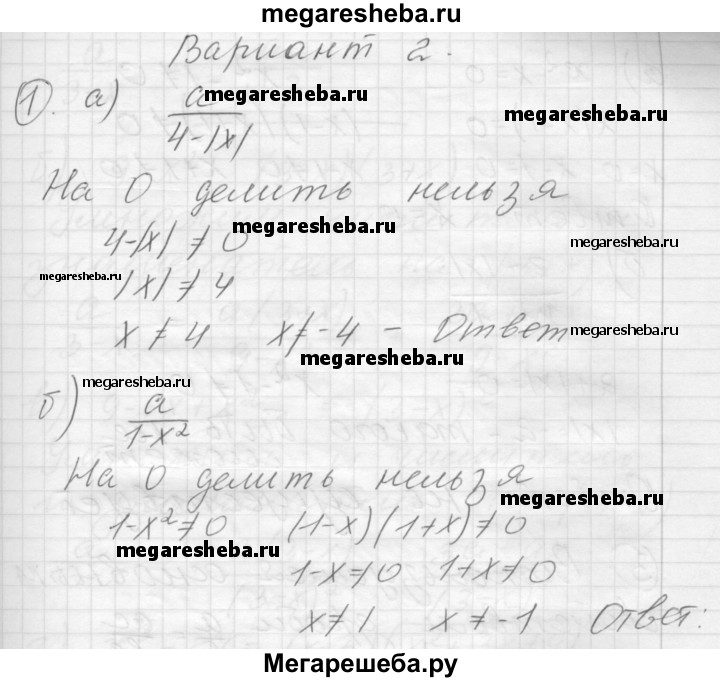 megaresheba.ru
Вариант 2.
1. а) a / 4-|x|
megaresheba.ru
megaresheba.ru
На 0 делить нельзя
megaresheba.ru
4-|x| ≠ 0
megaresheba.ru
megaresheba.ru
|x| ≠ 4
x ≠ 4 x ≠ -4 - Ответ
megaresheba.ru
megaresheba.ru
megaresheba.ru
б) a / 1-x²
На 0 делить нельзя
megaresheba.ru
1-x² ≠ 0 (1-x)(1+x) ≠ 0
megaresheba.ru
1-x ≠ 0 1+x ≠ 0
x ≠ 1 x ≠ -1 Ответ:
Мегарешеба.ру